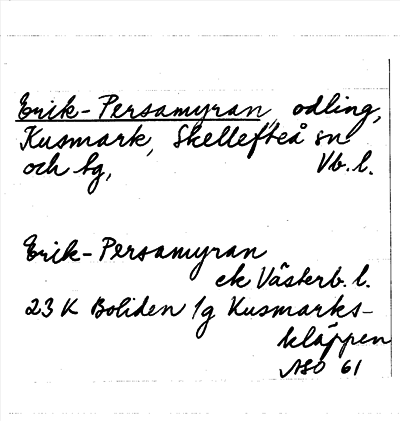 Erik-Persamyran, odling,
Kusmark, Skellefteå sn
och tg, Vb. l.
Erik-Persamyran
ek Västerb. l.
23 K Boliden 1g Kusmarks-
kläppen
ASO 61